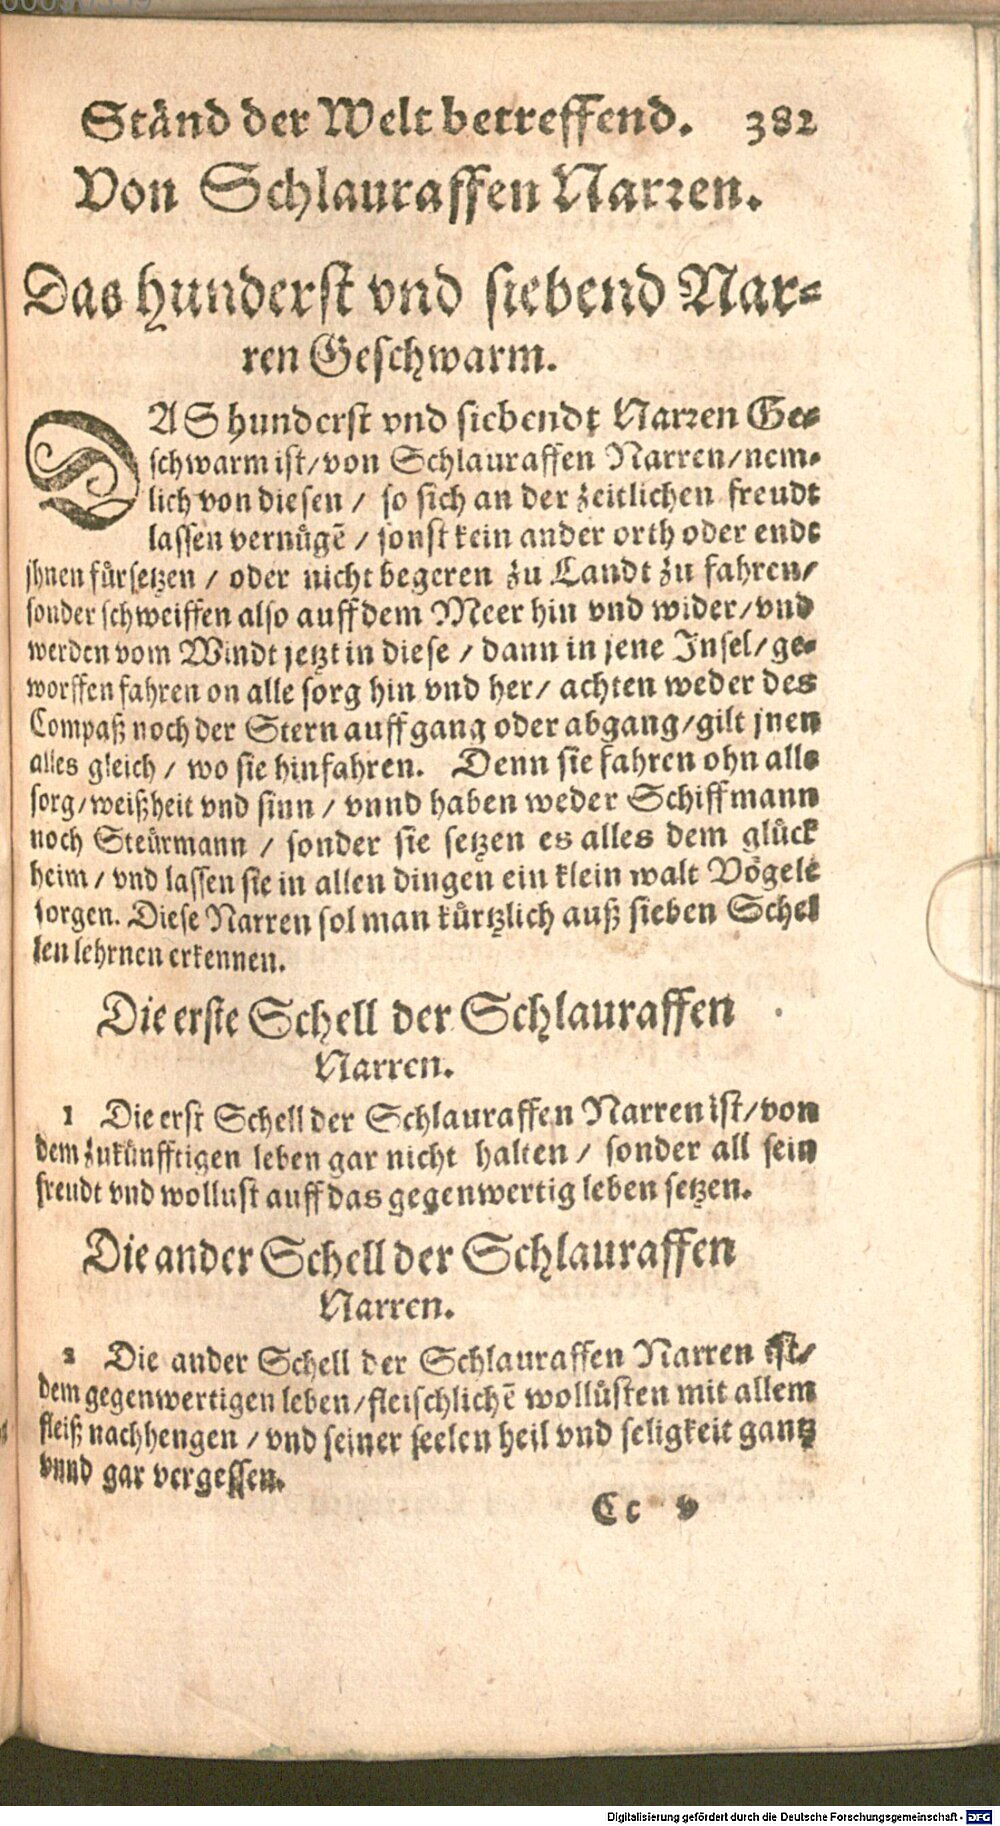 Ständ der Welt betreffend. 382
Von Schlauraffen Narren.
Das hunderst vnd siebend Nar-
ren Geschwarm.
DAS hunderst vnd siebendt Narren Ge-
schwarm ist/ von Schlauraffen Narren/ nem-
lich von diesen / so sich an der zeitlichen freudt
lassen vernügē / sonst kein ander orth oder ende
jhnen fürsetzen / oder nicht begeren zu Landt zu fahren/
sonder schweiffen also auff dem Meer hin vnd wider/ vnd
werden vom Windt jetzt in diese / dann in jene Insel/ ge-
worffen fahren on alle sorg hin vnd her/ achten weder des
Compaß noch der Stern auffgang oder abgang/ gilt jnen
alles gleich / wo sie hinfahren. Denn sie fahren ohn alle
sorg/ weißheit vnd sinn / vnnd haben weder Schiffmann
noch Steürmann / sonder sie setzen es alles dem glück
heim / vnd lassen sie in allen dingen ein klein walt Vögele
sorgen. Diese Narren sol man kürtzlich auß sieben Schel
len lehrnen erkennen.
Die erste Schell der Schlauraffen
Narren.
1 Die erst Schell der Schlauraffen Narren ist/ von
dem zukünfftigen leben gar nicht halten / sonder all sein
freudt vnd wollust auff das gegenwertig leben setzen.
Die ander Schell der Schlauraffen
Narren.
2 Die ander Schell der Schlauraffen Narren ist/
dem gegenwertigen leben/ fleischlichē wollüsten mit allem
fleiß nachhengen / vnd seiner seelen heil vnd seligkeit gantz
vnnd gar vergessen.
Cc v
Digitalisierung gefördert durch die Deutsche Forschungsgemeinschaft - DFG